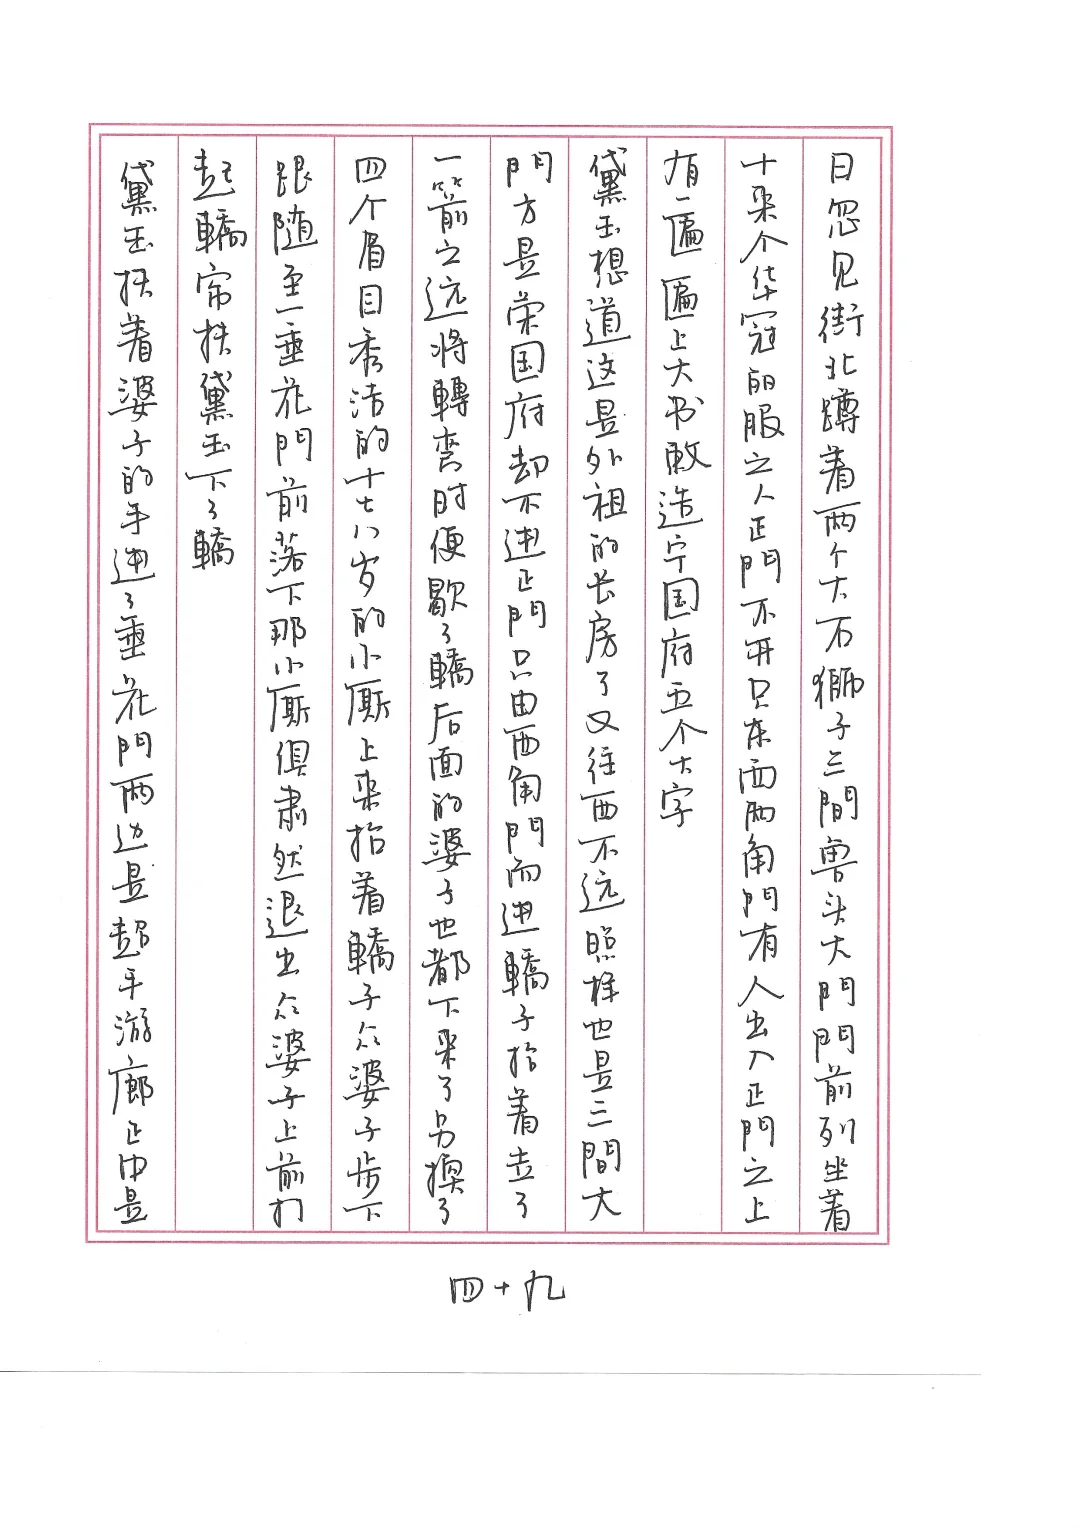 日忽见街北蹲着两个大石獅子三間兽头大門門前列坐着
十来个华冠的服之人正門不开只东西两角門有人出入正門之上
有一匾匾上大书敕造宁国府五个大字
黛玉想道这是外祖的长房了又往西不远照样也是三間大
門方是荣国府却不进正門只由西角門而进轎子抬着去了
一箭之远将轉弯时便歇了轎后面的婆子也都下来了另换了
四个眉目秀洁的十七八岁的小厮上来抬着轎子众婆子步下
跟随至一垂花門前落下那小厮俱肃然退出众婆子上前打
起轎帘扶黛玉下了轎
黛玉扶着婆子的手进了垂花門两边是超手游廊正中是
四十九